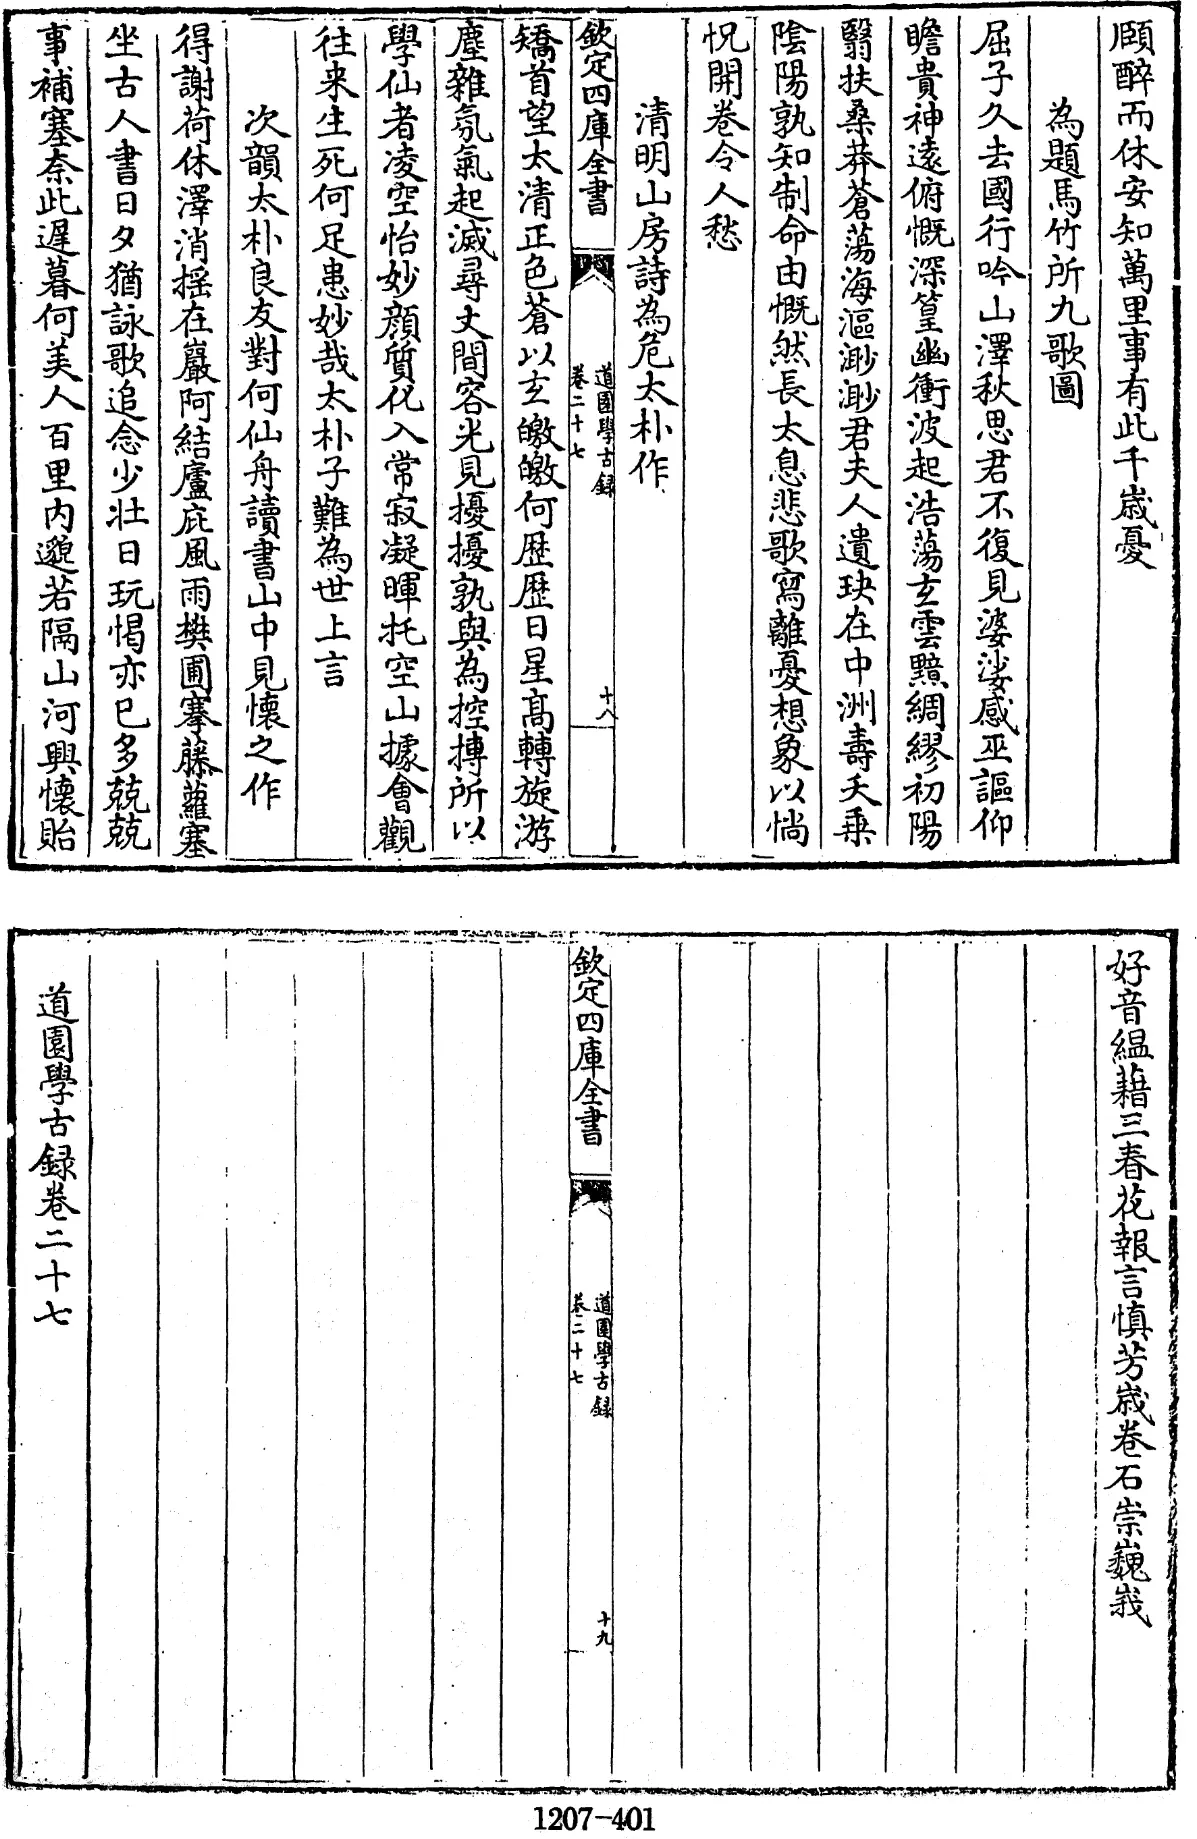 頤醉而休安知萬里事有此千歲憂
為題馬竹所九歌圖
屈子久去國行吟山澤秋思君不復見婆娑感巫謳仰
瞻貴神遠俯慨深篁幽衝波起浩蕩玄雲黯綢繆初陽
翳扶桑莽蒼蕩海漚渺渺君夫人遺玦在中洲壽夭乗
隂陽孰知制命由慨然長太息悲歌寫離憂想象以惝
怳開卷令人愁
清明山房詩為危太朴作
欽定四庫全書
道園學古録
卷二十七
十八
矯首望太清正色蒼以玄皦皦何歴歴日星髙轉旋游
塵雜氛氣起滅尋丈間容光見擾擾孰與為控摶所以
學仙者凌空怡妙顔質化入常寂凝暉托空山據㑹觀
往来生死何足患妙哉太朴子難為世上言
次韻太朴良友對何仙舟讀書山中見懷之作
得謝荷休澤消揺在巖阿結廬庇風雨樊圃搴藤蘿塞
坐古人書日夕猶詠歌追念少壯日玩愒亦已多兢兢
事補塞奈此遲暮何美人百里内邈若隔山河興懷貽
好音緼藉三春花報言慎芳歲卷石崇巍峩
欽定四庫全書
道園學古録
卷二十七
十九
道園學古録卷二十七
1207-401